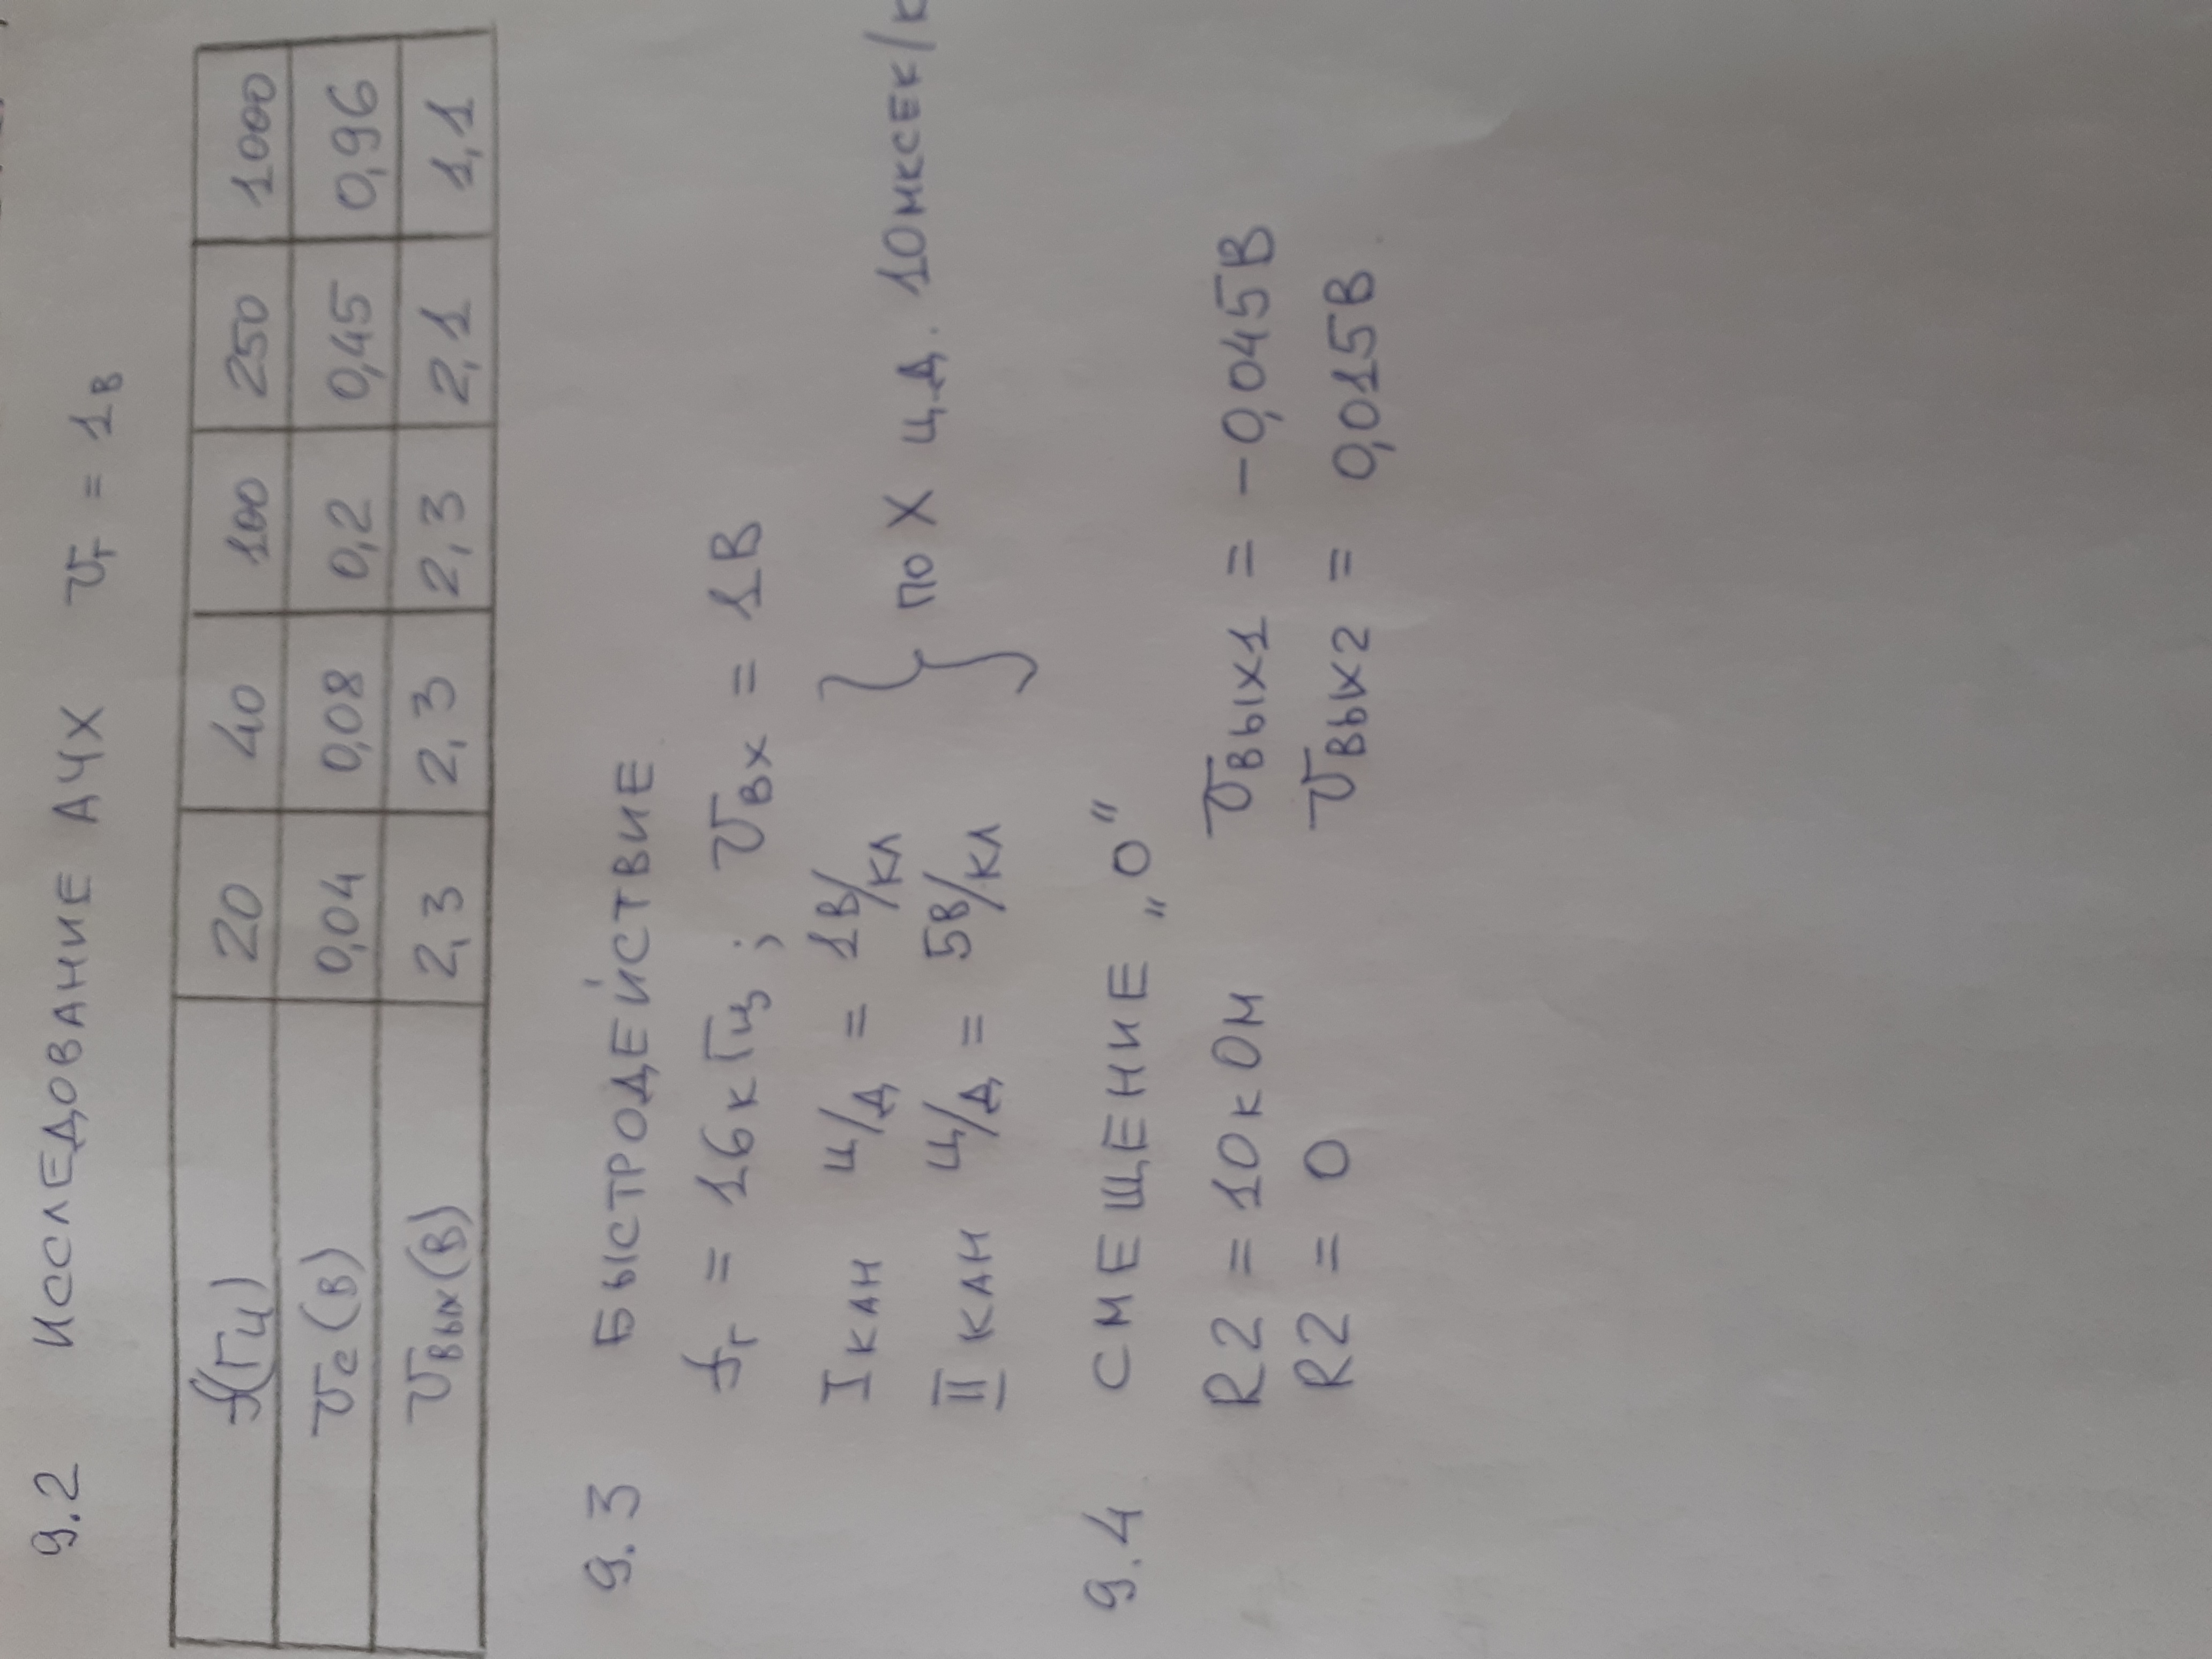 9.2 ИССЛЕДОВАНИЕ АЧХ Uг = 1В
f(Гц) 20 40 100 250 1000
Uс(В) 0,04 0,08 0,2 0,45 0,96
Uвых(В) 2,3 2,3 2,3 2,1 1,1
9.3 БЫСТРОДЕЙСТВИЕ
fг = 16кГц; Uвх = 1В
I КАН Ц/Д = 1В/КЛ
II КАН Ц/Д = 5В/КЛ
} ПО Х Ц.Д. 10МКСЕК/К
9.4 СМЕЩЕНИЕ „0"
R2 = 10кОм Uвых1 = -0,045В
R2 = 0 Uвых2 = 0,015В